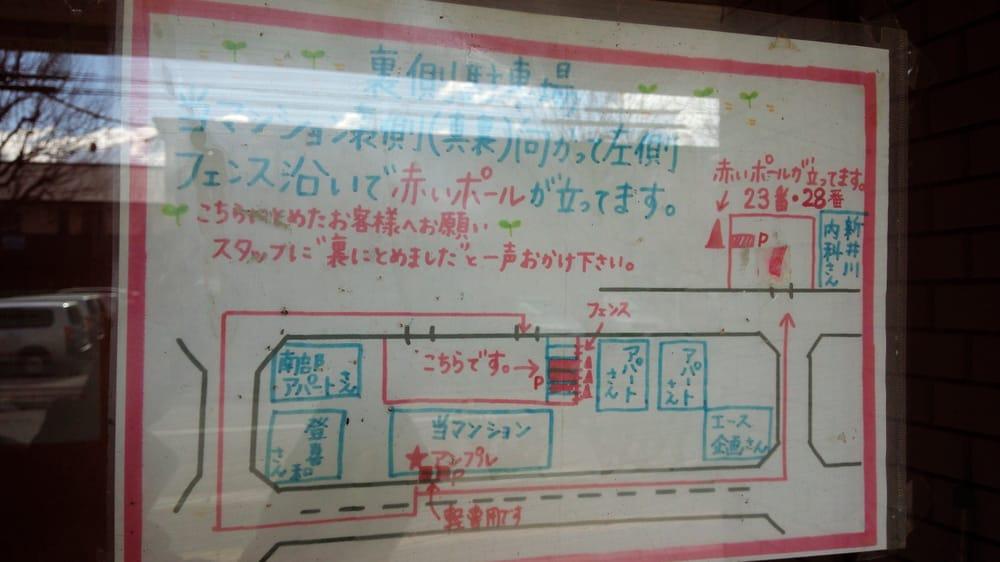 裏側駐車場
当マンション裏側(真裏)向かって左側
フェンス沿いで赤いポールが立ってます。
こちらにとめたお客様へお願い
スタッフに"裏にとめました"と一声おかけ下さい。
赤いポールが立ってます。
23番・28番
P
新井川
内科さん
フェンス
南部
アパートさん
こちらです。→
P
アパートさん
アパートさん
登喜和さん
当マンション
★アンプル
P
エース
企画さん
軽専用です